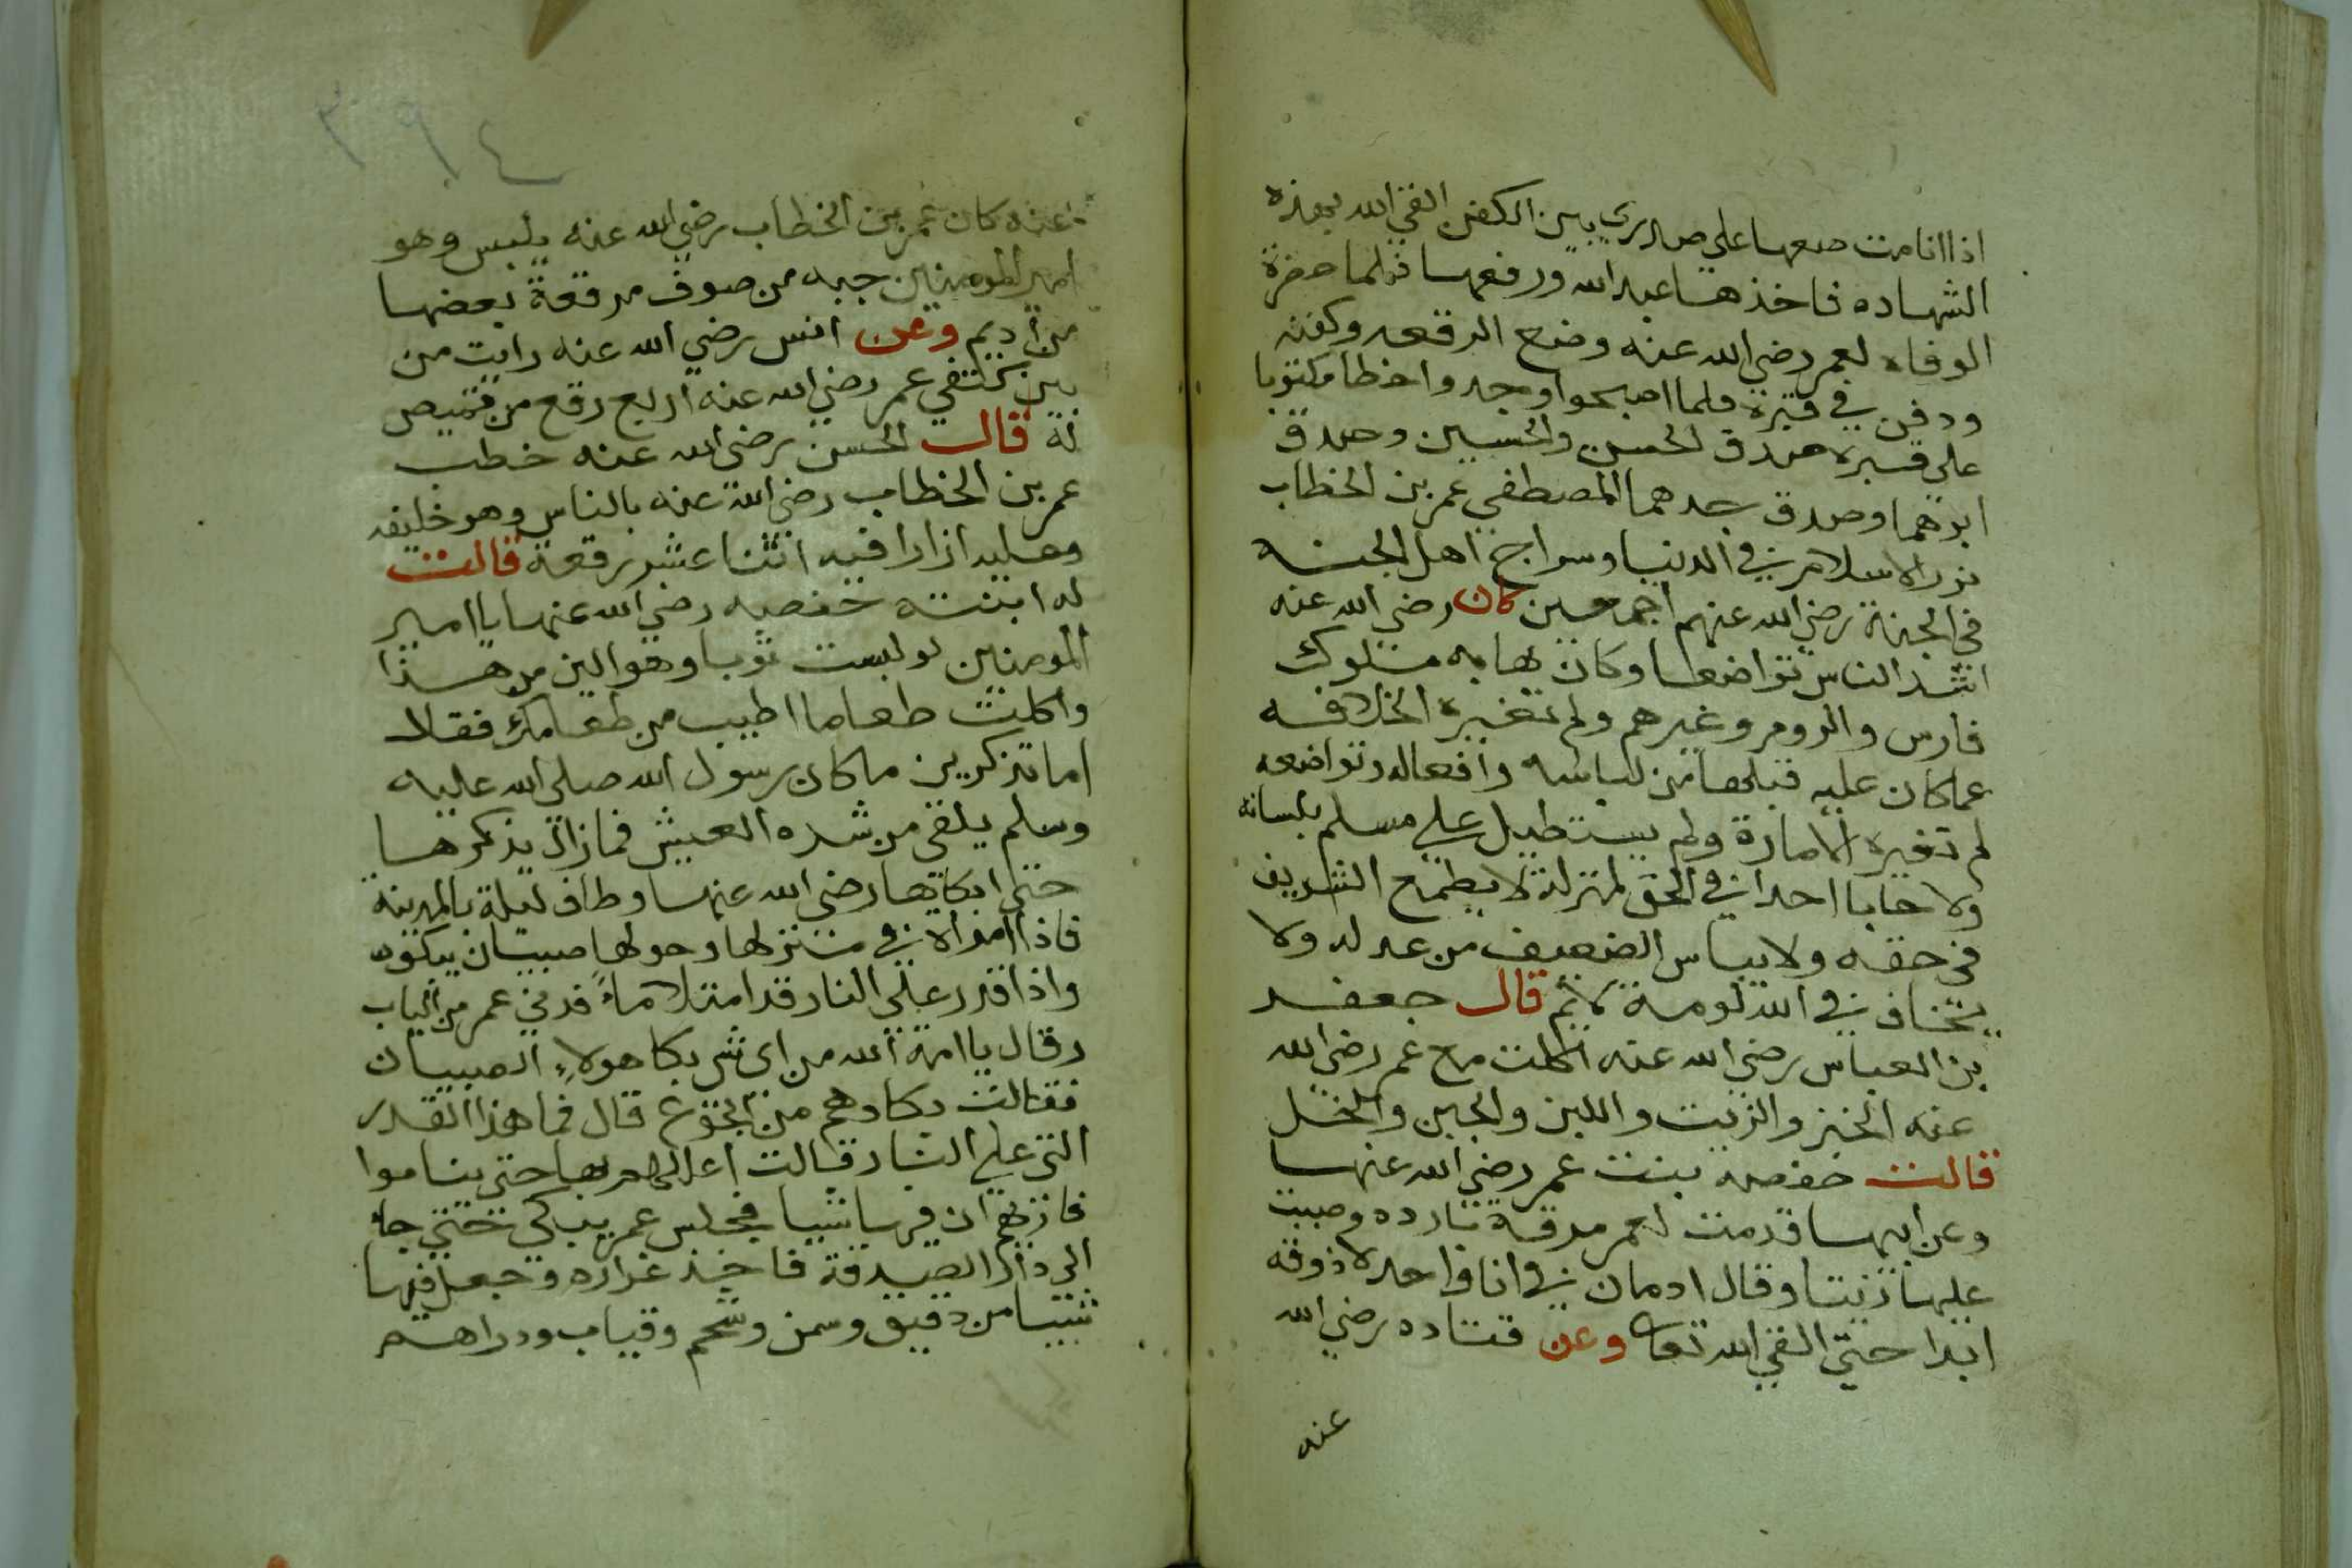 اذا انا مت ضعها على صدري بين الكفن القي الله بهذه
الشهاده فاخذها عبد الله ورفعها فلما حضرة
الوفاه لعمر رضي الله عنه وضع الرقعه وكفنه
ودفن في قبره فلما اصبحوا وجدوا خطا مكتوبا
على قبره صدق الحسن والحسين وصدق
ابوهما وصدق جدهما المصطفي عمر بن الخطاب
نور الاسلام في الدنيا وسراج اهل الجنه
في الجنة رضي الله عنهم اجمعين كان رضي الله عنه
اشد الناس تواضعا وكان بهابه ملوك
فارس والروم وغيرهم ولم تغيره الخلافه
عما كان عليه قبلها من لباسه وافعاله وتواضعه
لم تغيره الامارة ولم يستطيل على مسلم بلسانه
ولا حابا احدا في الحق لمنزلة لا يطمع الشريف
في حقه ولا يياس الضعيف من عدله ولا
يخاف في الله لومة لايم قال جعفر
بن العباس رضي الله عنه اكلت مع عمر رضي الله
عنه الخبز والزيت واللبن والجبن والخل
قالت حفصه بنت عمر رضي الله عنها
وعن ابيها قدمت لعمر مرقة بارده وصببت
عليها زيتا وقال ادمان في انا واحد لا ذوقه
ابدا حتى القي الله تعالى وعن قتاده رضي الله
عنه
٣٩٤
عنه كان عمر بن الخطاب رضي الله عنه يلبس وهو
امير المومنين جبه من صوف مرقعة بعضها
من أديم وعن انس رضي الله عنه رايت من
بين كتفي عمر رضي الله عنه اربع رقع من قميص
له قال الحسن رضي الله عنه خطب
عمر بن الخطاب رضي الله عنه بالناس وهو خليفه
وعليه ازارا فيه اثنا عشر رقعة قالت
له ابنته حفصه رضي الله عنها يا امير
المومنين لو لبست ثوبا وهو الين من هذا
واكلت طعاما اطيب من طعامك فقال
اما تذكرين ما كان رسول الله صلى الله عليه
وسلم يلقي من شده العيش فما زال يذكرها
حتى ابكاها رضي الله عنها وطاف ليلة بالمدينة
فاذا امراة في منزلها وحولها صبيان يبكون
واذا قدر على النار قد امتلا مآءً فدني عمر من الباب
وقال يا امة الله من اي شي بكا هولاءِ الصبيان
فقالت بكاوهم من الجوع قال فما هذا القدر
التي على النار قالت اعللهم بها حتى يناموا
فازيهم ان فيها شيا فجلس عمر يبكي حتى جاء
الى دار الصدقة فاخذ غراره وجعل فيها
شيا من دقيق وسمن وشحم وثياب ودراهم